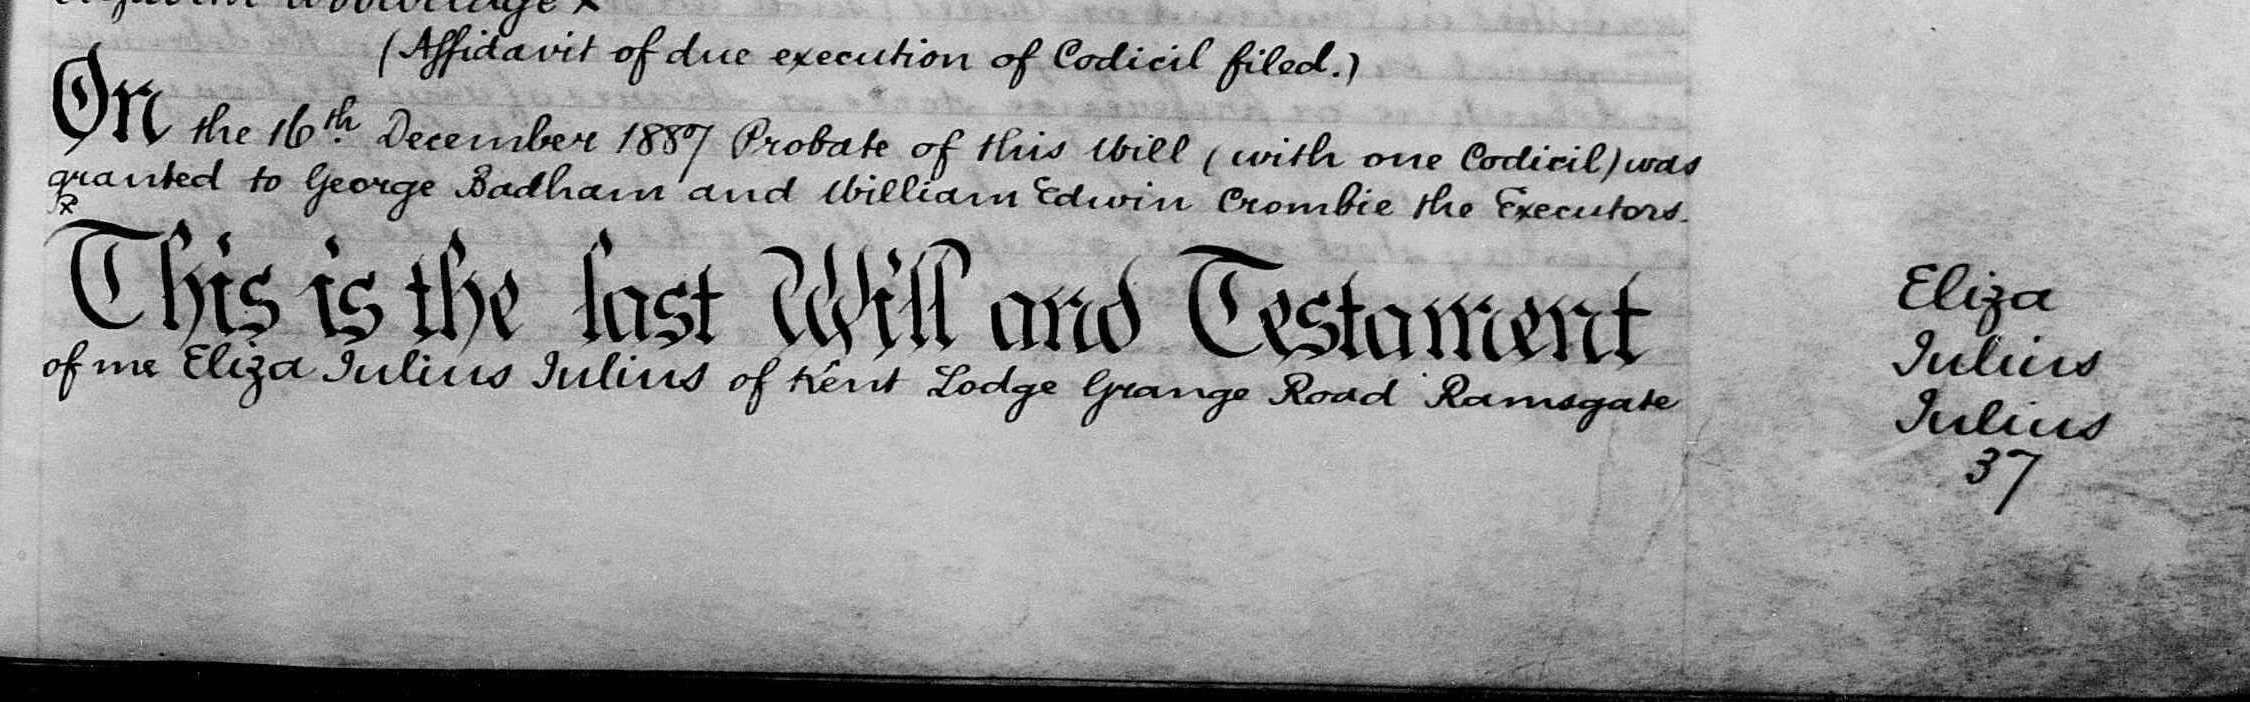 (Affidavit of due execution of Codicil filed.)
On the 16th. December 1887 Probate of this Will (with one Codicil) was
granted to George Badham and William Edwin Crombie the Executors.
x
This is the last Will and Testament
of me Eliza Julius Julius of Kent Lodge Grange Road Ramsgate
Eliza
Julius
Julius
37